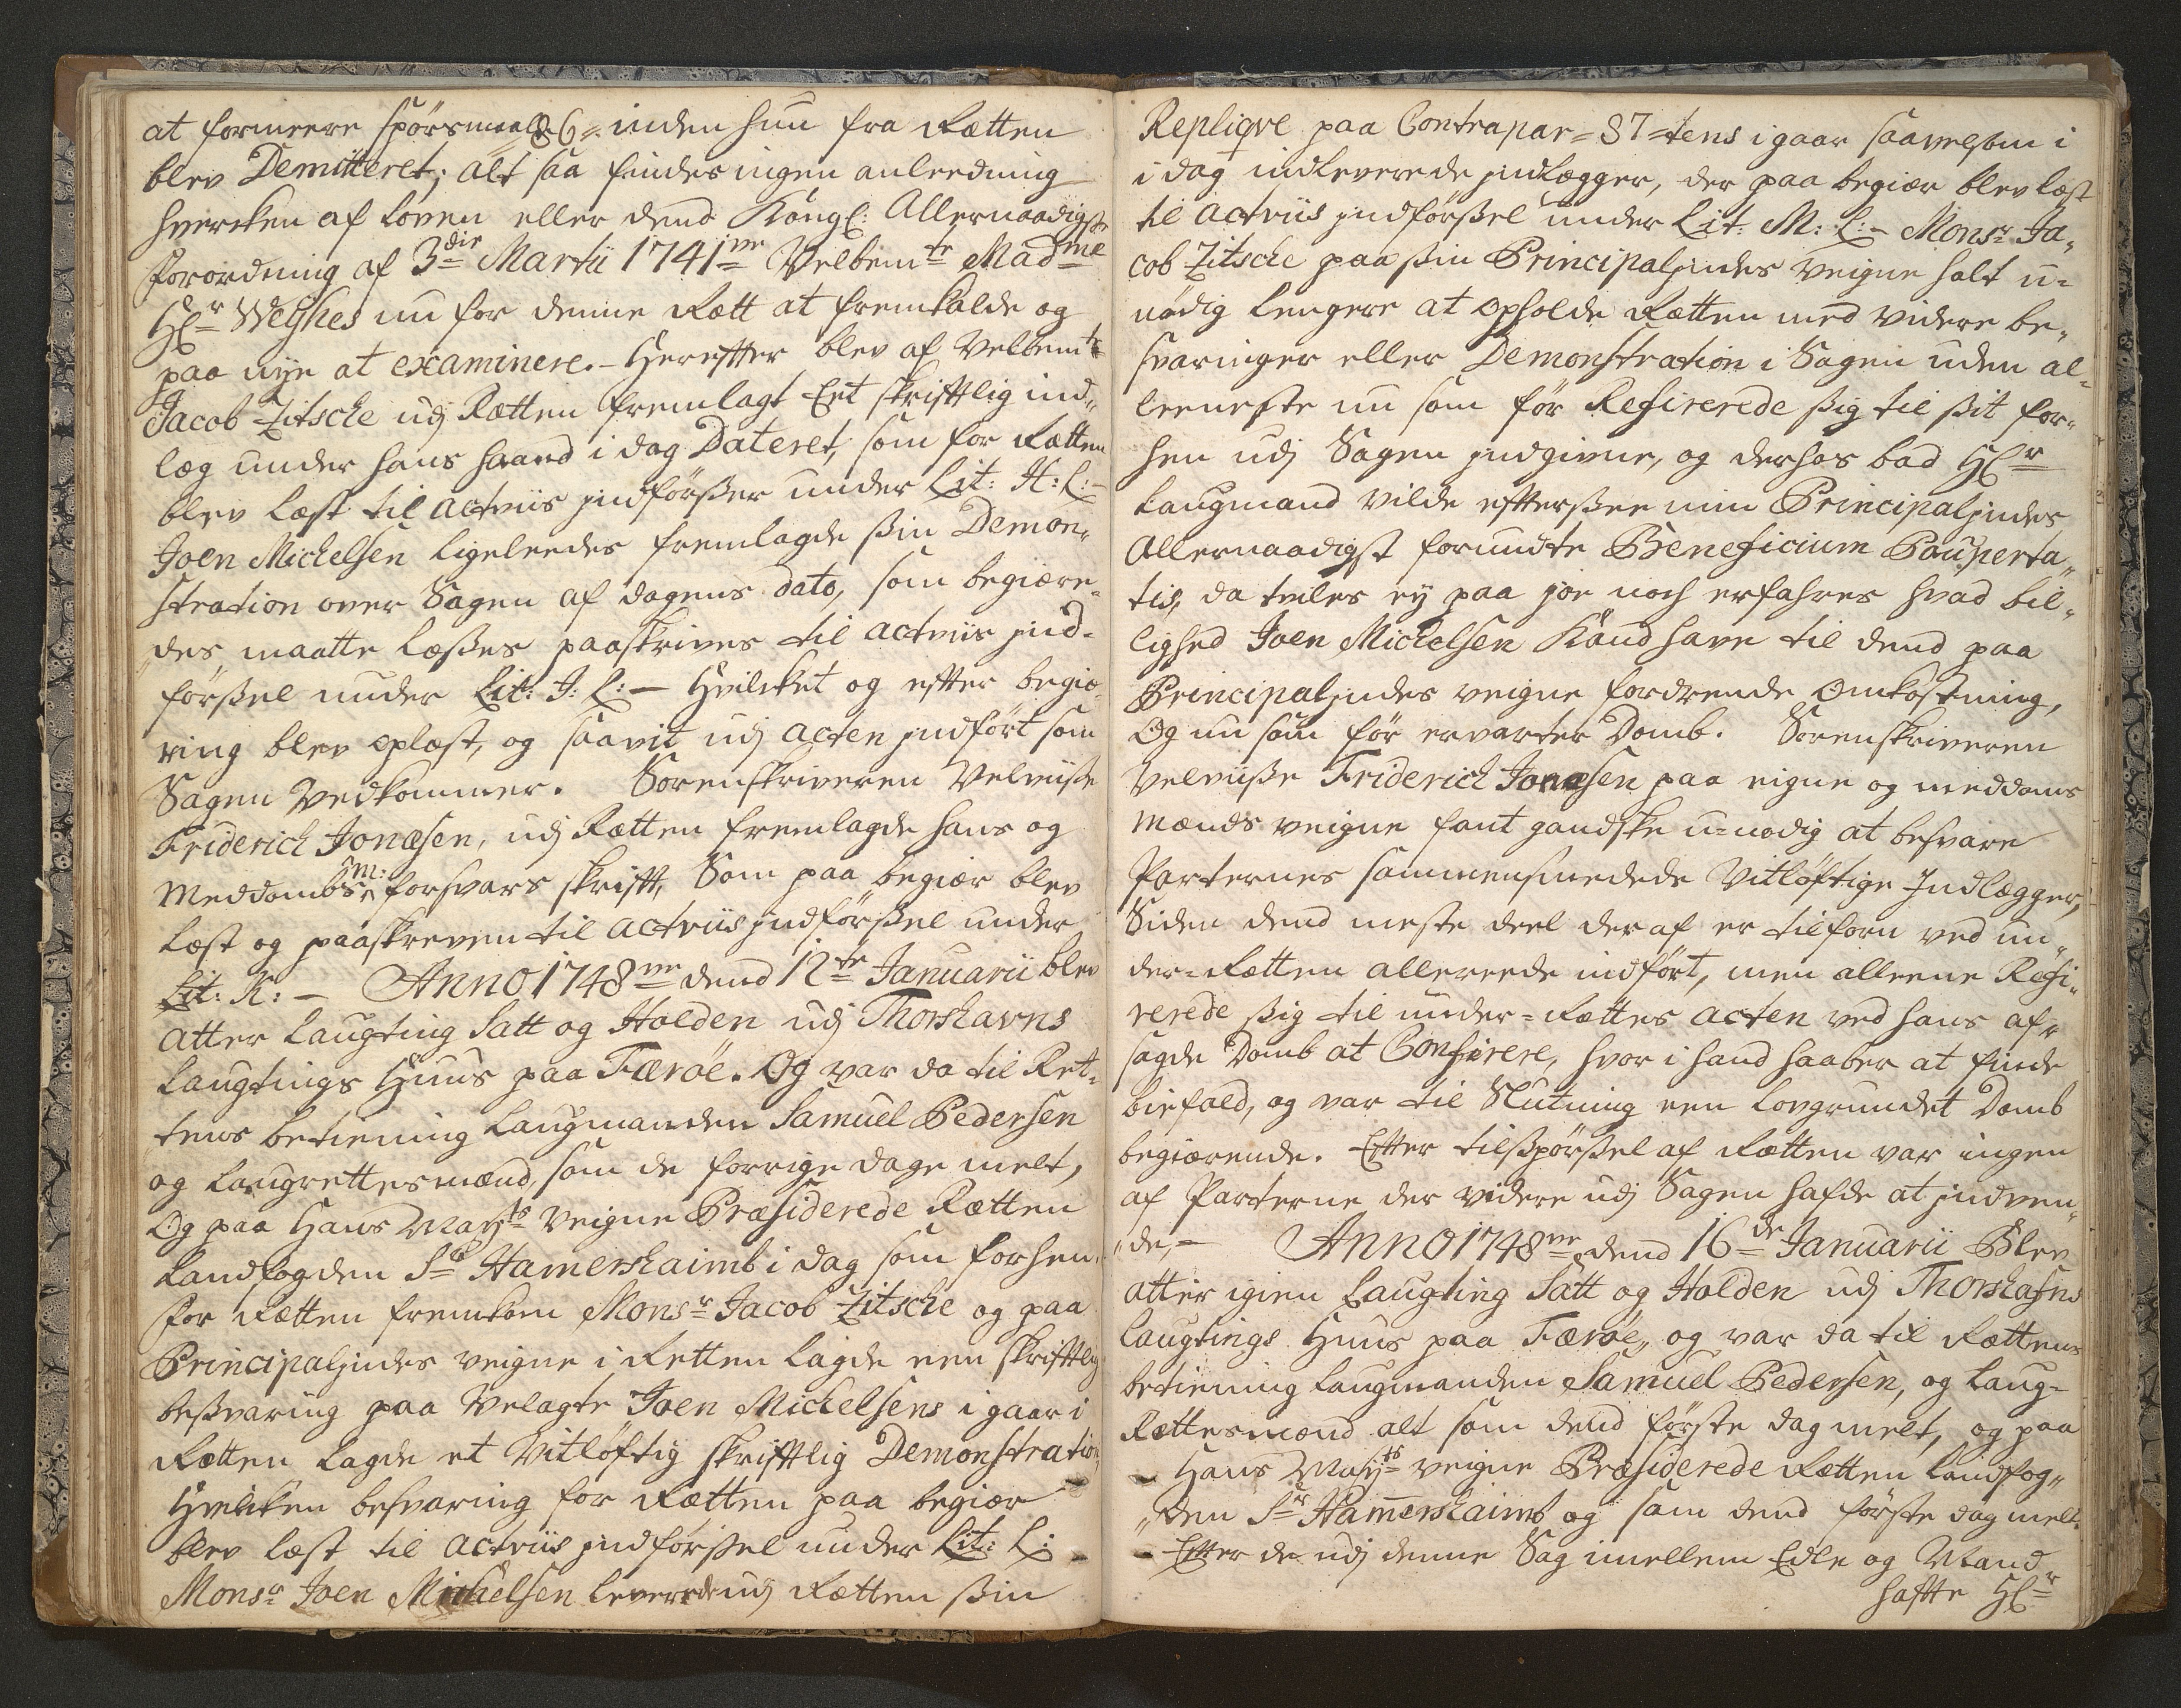 at formere spörsmaal =86= inden hun fra Rætten
blev Demitteret; alt saa findes ingen anleedning
hvercken af loven eller dend Kongl: Allernaadigste
forordning af 3die Martii 1741ve Velbemte Madme
Hl:r Weyhes nu for denne Rætt at fremkalde og
paa nye at examinere. - Herefter blev af Velbemte
Jacob Zitsche udj Rætten fremlagt Eet skriftlig ind„
læg under hans haand i dag Dateret, som for Rætten
blev læst til actviis jndförßer under Lit: H: L: -
Joen Michelsen ligeleedes fremlagde ßin Demon„
stration over Sagen af dagens dato, som begiære„
„des, maatte læßes paaskrives til actviis jnd„
förßel under Lit: J: L: - Hvilcket og efter begiæ„
ring blev oplæst, og saavit udj acten jndfört som
Sagen Vedkommer. Sorenskriveren Velviiße
Friderich Jonæsen, udj Rætten fremlagde hans og
Meddombsm: forsvars skrifft, Som paa begiær blev
læst og paaskreven til actviis jndförßel under
Lit: K: - Anno 1748ve dend 12te Januarii blev
atter laugting Satt og Holden udj Thorshavns
laugtings Huus paa Færöe. Og var da til Ret„
tens betiening laugmanden Samuel Pedersen
og laugrettesmænd, som de forrige dage melt,
Og paa Hans Maÿts Veigne Præsiderede Rætten
landfogden Sr Hamershaimb i dag som forhen.
for Rætten fremkom Monsr Jacob Zitsche og paa
Principalindes veigne i Retten lagde een skriftlig
beßvaring paa Velagte Joen Michelsens i gaar i
Rætten lagde et Vitlöftig skriftlig Demonstration,
Hvilcken besvaring for Rætten paa begiær
blev læst til actviis jndförßel under Lit: L:
Monsr Joen Michelsen leverede udj Rætten ßin
Repliqve paa Contrapar= 87 =tens i gaar saavelsom i
i dag indleverede jndlægger, der paa begiær blev læst
til actviis jndförßel under Lit: M: L: - Monsr Ja„
cob Zitsche paa ßin Principalindes Veigne holt u=
nödig lengere at opholde Rætten med videre be„
svaringer eller Demonstration i Sagen uden al„
leeneste nu som för Refirerede ßig til ßit for„
hen udj Sagen jndgivne, og derhos bad Hl:r
laugmand vilde efterßee min Principalindes
Allernaadigst forundte Beneficium Pauperta„
tis, da tviles ey paa joe noch erfahres hvad bil„
lighed Joen Michelsen Kand have til dend paa
Principalindes veigne fordrende Omkostning,
Og nu som för ervarter Domb. Sorenskriveren
Velviiße Friderich Jonæsen paa eigne og meddoms
mænds veigne fant gandske u=nodig at besvare
Parternes sammensmedede Vitlöftige Indlægger,
Siden dend meste deel deraf er tilforn ved un„
der=Rætten allereede indfört, men alleene Refi„
rerede ßig til under=Rættes acten ved hans af„
sagde Domb at Confirere, hvor i hand haaber at finde
biefald, og var til Slutning een lovgrundet Domb
begiærende. Efter tilßpörßel af Rætten var ingen
af Parterne der videre udj Sagen hafde at jndven„
„de, - Anno 1748ve dend 16de Januarii Blev
atter igien Laugting Satt og Holden udj Thorshafns
laugtings Huus paa Færöe, og var da til Rættens
betiening laugmanden Samuel Pedersen, og laug=
Rættesmænd alt som dend förste dag melt, og paa
Hans Mayts veigne Præsiderede Rætten landfog„
„den Sr Hamershaimb og som dend förste dag melt.
Efter de udj denne Sag imellem Edle og Mand
haftte Hl:r